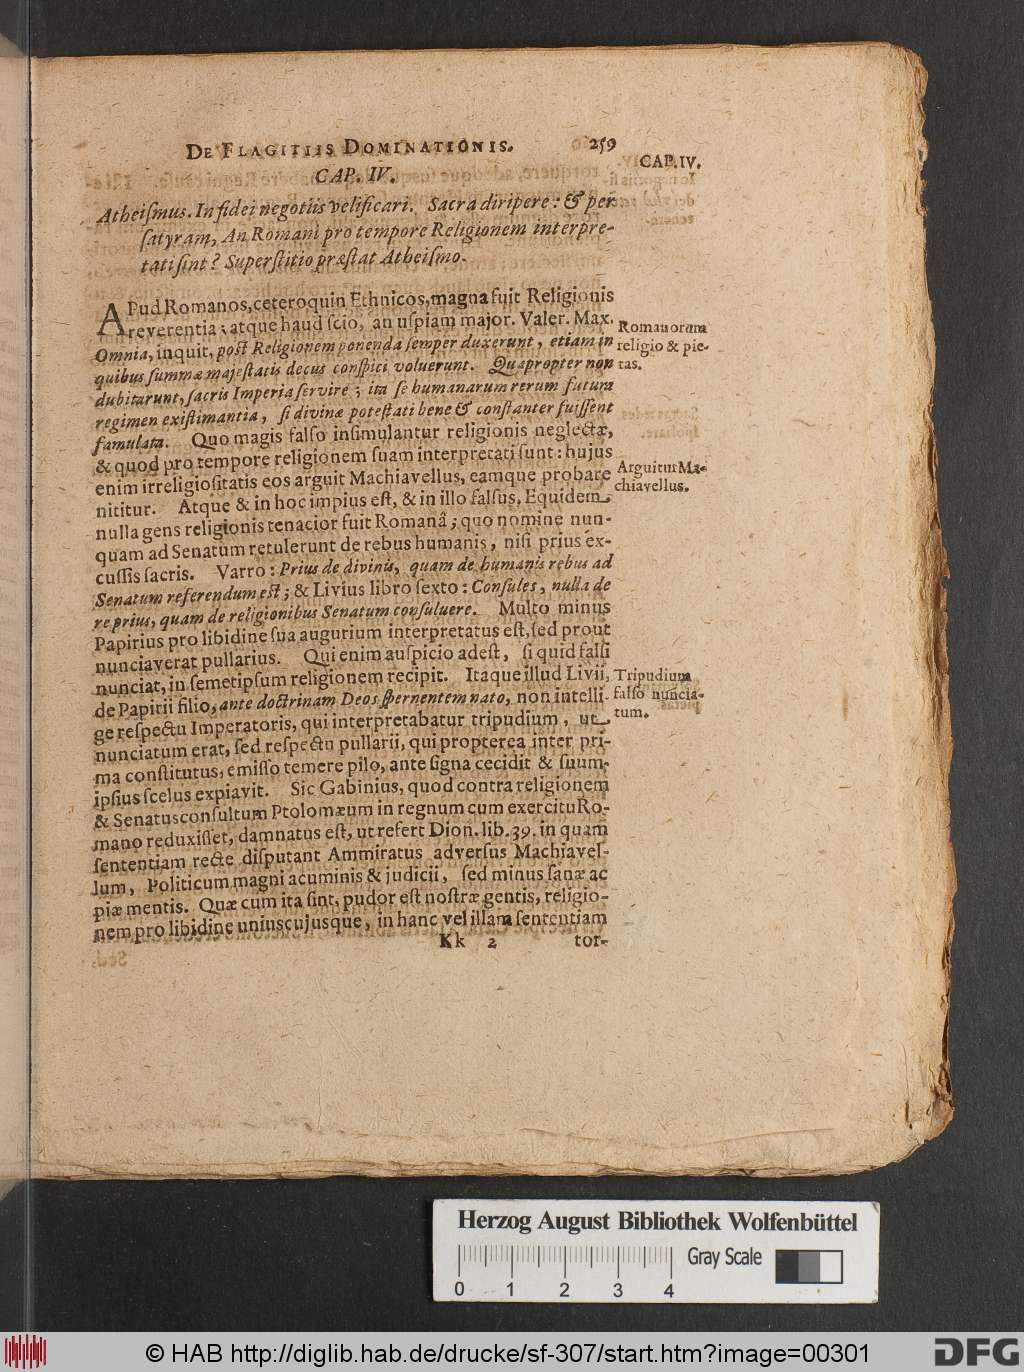 DE FLAGITIIS DOMINATIONIS. 259
CAP. IV.
CAP. IV.
Atheiſmus. In fidei negotiis velificari. Sacra diripere: & per
ſatyram, An Romani pro tempore Religionem interpre-
tati ſint? Superſtitio præſtat Atheiſmo.
APud Romanos, ceteroquin Ethnicos, magna fuit Religionis
reverentia; atque haud ſcio, an uſpiam major. Valer. Max.
Omnia, inquit, poſt Religionem ponenda ſemper duxerunt, etiam in
quibus ſummæ majeſtatis decus conſpici voluerunt. Quapropter non
dubitarunt, ſacris Imperia ſervire; ita ſe humanarum rerum futura
regimen exiſtimantia, ſi divinæ poteſtati bene & conſtanter fuiſſent
famulata. Quo magis falſo inſimulantur religionis neglectæ,
& quod pro tempore religionem ſuam interpretati ſunt: hujus
enim irreligioſitatis eos arguit Machiavellus, eamque probare
nititur. Atque & in hoc impius eſt, & in illo falſus. Equidem
nulla gens religionis tenacior fuit Romanâ; quo nomine nun-
quam ad Senatum retulerunt de rebus humanis, niſi prius ex-
cuſſis ſacris. Varro: Prius de divinis, quam de humanis rebus ad
Senatum referendum eſt; & Livius libro ſexto: Conſules, nulla de
re prius, quam de religionibus Senatum conſuluere. Multo minus
Papirius pro libidine ſua augurium interpretatus eſt, ſed prout
nunciaverat pullarius. Qui enim auſpicio adeſt, ſi quid falſi
nunciat, in ſemetipſum religionem recipit. Itaque illud Livii,
de Papirii filio, ante doctrinam Deos ſpernentem nato, non intelli-
ge reſpectu Imperatoris, qui interpretabatur tripudium, ut
nunciatum erat, ſed reſpectu pullarii, qui propterea inter pri-
ma conſtitutus, emiſſo temere pilo, ante ſigna cecidit & ſuum
ipſius ſcelus expiavit. Sic Gabinius, quod contra religionem
& Senatusconſultum Ptolomæum in regnum cum exercitu Ro-
mano reduxiſſet, damnatus eſt, ut refert Dion. lib. 39. in quam
ſententiam recte diſputant Ammiratus adverſus Machiavel-
lum, Politicum magni acuminis & judicii, ſed minus ſanæ ac
piæ mentis. Quæ cum ita ſint, pudor eſt noſtræ gentis, religio-
nem pro libidine uniuscujusque, in hanc vel illam ſententiam
Kk 2 tor-
Romanorum
religio & pie-
tas.
Arguitur Ma-
chiavellus.
Tripudium
falſo nuncia-
tum.
Herzog August Bibliothek Wolfenbüttel
Gray Scale
0 1 2 3 4
© HAB http://diglib.hab.de/drucke/sf-307/start.htm?image=00301
DFG